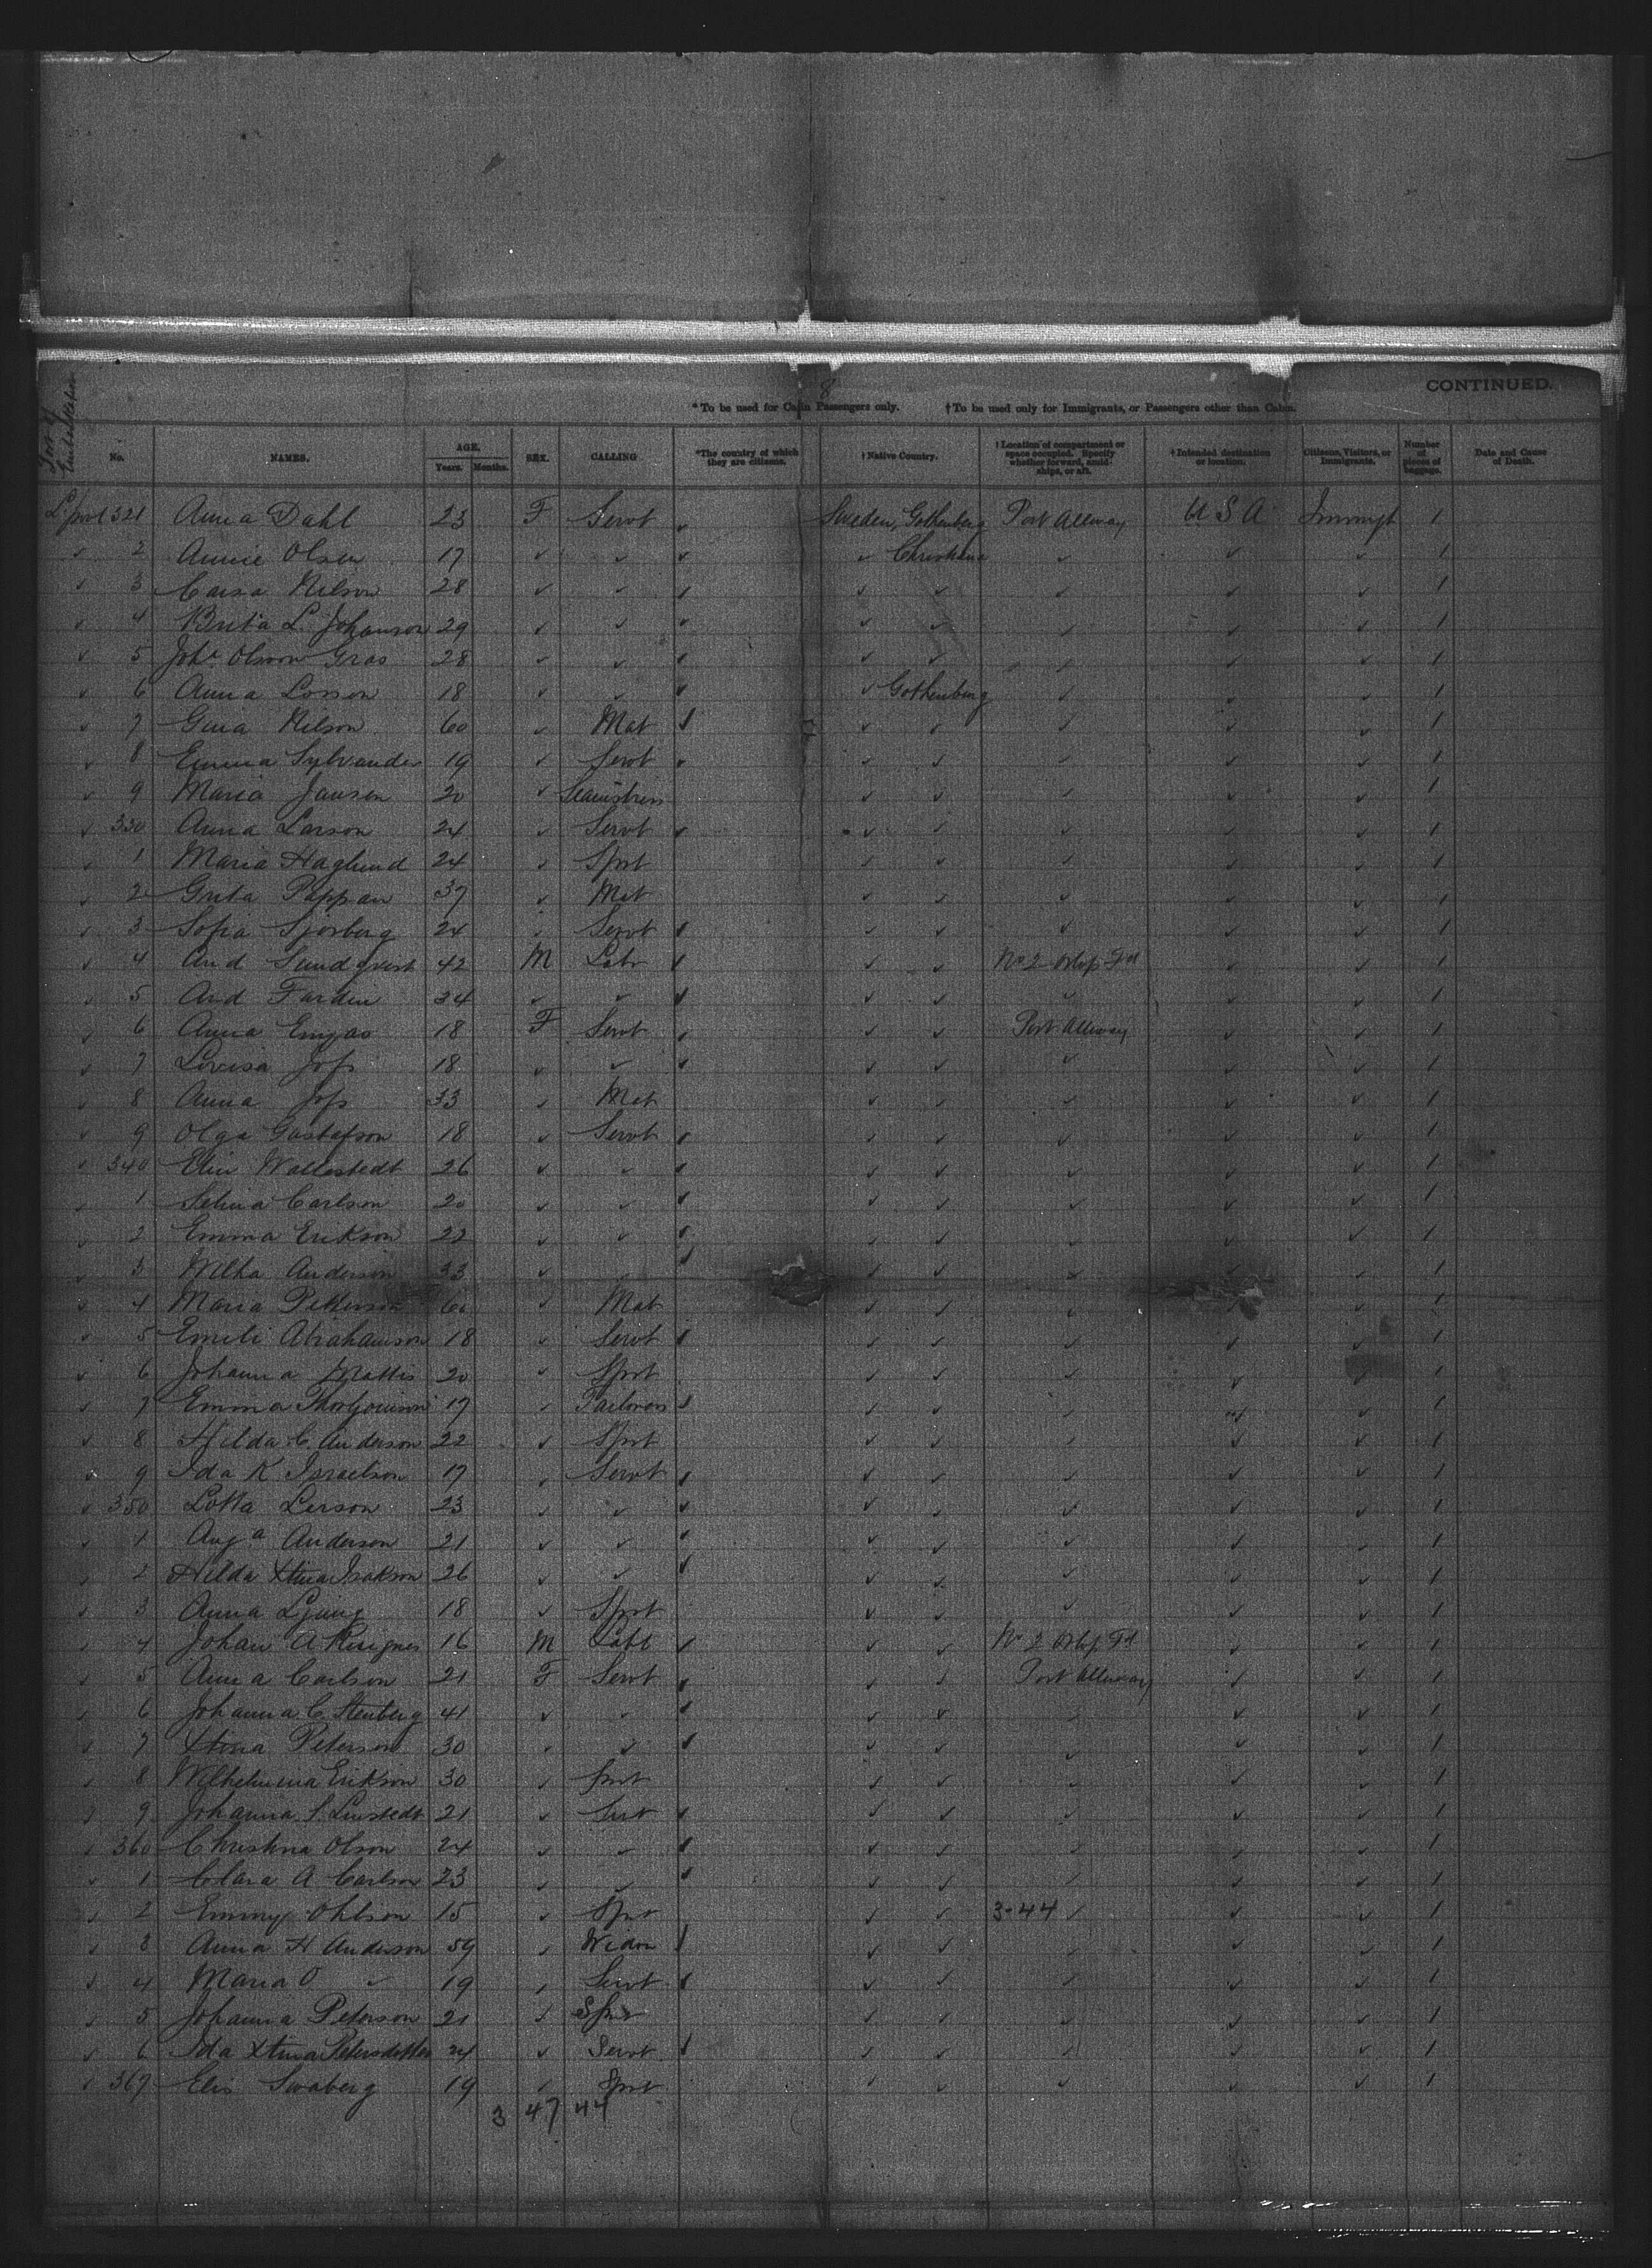 8
CONTINUED.
*To be used for Cabin Passengers only. †To be used only for Immigrants, or Passengers other than Cabin.
Port of Embarkation No. NAMES. AGE. Years. Months. SEX. CALLING *The country of which they are citizens. †Native Country. †Location of compartment or space occupied. Specify whether forward, amidships, or aft. †Intended destination or location. Citizens, Visitors, or Immigrants. Number of pieces of baggage. Date and Cause of Death.
L.pool 321 Anna Dahl 23 F Servt ✓ Sweden, Gothenberg Port Alleway U S A Immigt 1
✓ 2 Annie Olsen 17 ✓ ✓ ✓ ✓ Christiana ✓ ✓ ✓ 1
✓ 3 Caisa Nilson 28 ✓ ✓ ✓ ✓ ✓ ✓ ✓ ✓ 1
✓ 4 Brita L. Johanson 29 ✓ ✓ ✓ ✓ ✓ ✓ ✓ ✓ 1
✓ 5 Joha Olsson Gras 28 ✓ ✓ ✓ ✓ ✓ ✓ ✓ ✓ 1
✓ 6 Anna Losson 18 ✓ ✓ ✓ ✓ Gothenberg ✓ ✓ ✓ 1
✓ 7 Gina Nilson 60 ✓ Mat ✓ ✓ ✓ ✓ ✓ ✓ 1
✓ 8 Emma Sylvander 19 ✓ Servt ✓ ✓ ✓ ✓ ✓ ✓ 1
✓ 9 Maria Jansen 20 ✓ Seamstress ✓ ✓ ✓ ✓ ✓ 1
✓ 330 Anna Larson 24 ✓ Servt ✓ ✓ ✓ ✓ ✓ ✓ 1
✓ 1 Maria Haglund 24 ✓ Sprt ✓ ✓ ✓ ✓ ✓ 1
✓ 2 Grita Pappan 37 ✓ Mat ✓ ✓ ✓ ✓ ✓ 1
✓ 3 Sofia Sjorberg 24 ✓ Servt ✓ ✓ ✓ ✓ ✓ ✓ 1
✓ 4 And Sundqvist 42 M Labr ✓ ✓ ✓ No 2 Orlop Fd ✓ ✓ 1
✓ 5 And Fardin 34 ✓ ✓ ✓ ✓ ✓ ✓ ✓ ✓ 1
✓ 6 Anna 18 F Servt ✓ ✓ ✓ Port Alleway ✓ ✓ 1
✓ 7 Lovisa 18 ✓ ✓ ✓ ✓ ✓ ✓ ✓ ✓ 1
✓ 8 Anna 33 ✓ Mat ✓ ✓ ✓ ✓ ✓ 1
✓ 9 Olga Gustafson 18 ✓ Servt ✓ ✓ ✓ ✓ ✓ ✓ 1
✓ 340 Elin Wallestedt 26 ✓ ✓ ✓ ✓ ✓ ✓ ✓ ✓ 1
✓ 1 Selina Carlson 20 ✓ ✓ ✓ ✓ ✓ ✓ ✓ ✓ 1
✓ 2 Emma Erikson 22 ✓ ✓ ✓ ✓ ✓ ✓ ✓ ✓ 1
✓ 3 Wilha Anderson 33 ✓ ✓ ✓ ✓ ✓ ✓ ✓ 1
✓ 4 Maria Peterson 60 ✓ Mat ✓ ✓ ✓ ✓ ✓ 1
✓ 5 Emili Abrahamson 18 ✓ Servt ✓ ✓ ✓ ✓ ✓ ✓ 1
✓ 6 Johanna Mattis 20 ✓ Sprt ✓ ✓ ✓ ✓ ✓ 1
✓ 7 Emma 17 ✓ Tailoress ✓ ✓ ✓ ✓ ✓ ✓ 1
✓ 8 Hilda C. Anderson 22 ✓ Sprt ✓ ✓ ✓ ✓ ✓ 1
✓ 9 Ida K Israelson 17 ✓ Servt ✓ ✓ ✓ ✓ ✓ ✓ 1
✓ 350 Lotta Lerson 23 ✓ ✓ ✓ ✓ ✓ ✓ ✓ ✓ 1
✓ 1 Auga Anderson 21 ✓ ✓ ✓ ✓ ✓ ✓ ✓ ✓ 1
✓ 2 Hilda Xtina Isakson 26 ✓ ✓ ✓ ✓ ✓ ✓ ✓ ✓ 1
✓ 3 Anna Ljung 18 ✓ Sprt ✓ ✓ ✓ ✓ ✓ 1
✓ 4 Johan A 16 M Labr ✓ ✓ ✓ No 2 Orlop Fd ✓ ✓ 1
✓ 5 Anna Carlson 21 F Servt ✓ ✓ ✓ Port Alleway ✓ ✓ 1
✓ 6 Johanna C. Stenberg 41 ✓ ✓ ✓ ✓ ✓ ✓ ✓ ✓ 1
✓ 7 Xtina Peterson 30 ✓ ✓ ✓ ✓ ✓ ✓ ✓ ✓ 1
✓ 8 Wilhelmina Erikson 30 ✓ Sprt ✓ ✓ ✓ ✓ ✓ 1
✓ 9 Johanna S. Linstedt 21 ✓ Servt ✓ ✓ ✓ ✓ ✓ ✓ 1
✓ 360 Christina Olson 24 ✓ ✓ ✓ ✓ ✓ ✓ ✓ ✓ 1
✓ 1 Clara A Carlson 23 ✓ ✓ ✓ ✓ ✓ ✓ ✓ ✓ 1
✓ 2 Emmy Ohlson 15 ✓ Sprt ✓ ✓ 3-44 ✓ ✓ ✓ 1
✓ 3 Anna H Anderson 59 ✓ Widow ✓ ✓ ✓ ✓ ✓ ✓ 1
✓ 4 Maria O ✓ 19 ✓ Servt ✓ ✓ ✓ ✓ ✓ ✓ 1
✓ 5 Johanna Peterson 21 ✓ Sprt ✓ ✓ ✓ ✓ ✓ 1
✓ 6 Ida Xtina Petersdotter 24 ✓ Servt ✓ ✓ ✓ ✓ ✓ ✓ 1
✓ 367 Elis Swaberg 19 ✓ Sprt ✓ ✓ ✓ ✓ ✓ 1
3 47 44